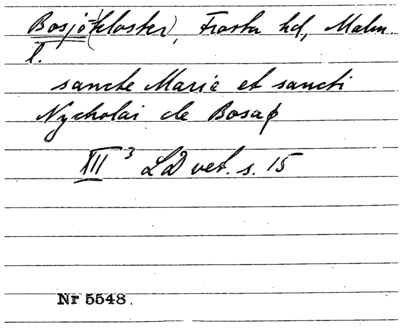 Bosjö(kloster), Frosta hd, Malm.
l.
sancte Marie et sancti
Nycholai de Bosaø
XII³ LD vet. s. 15
Nr 5548.